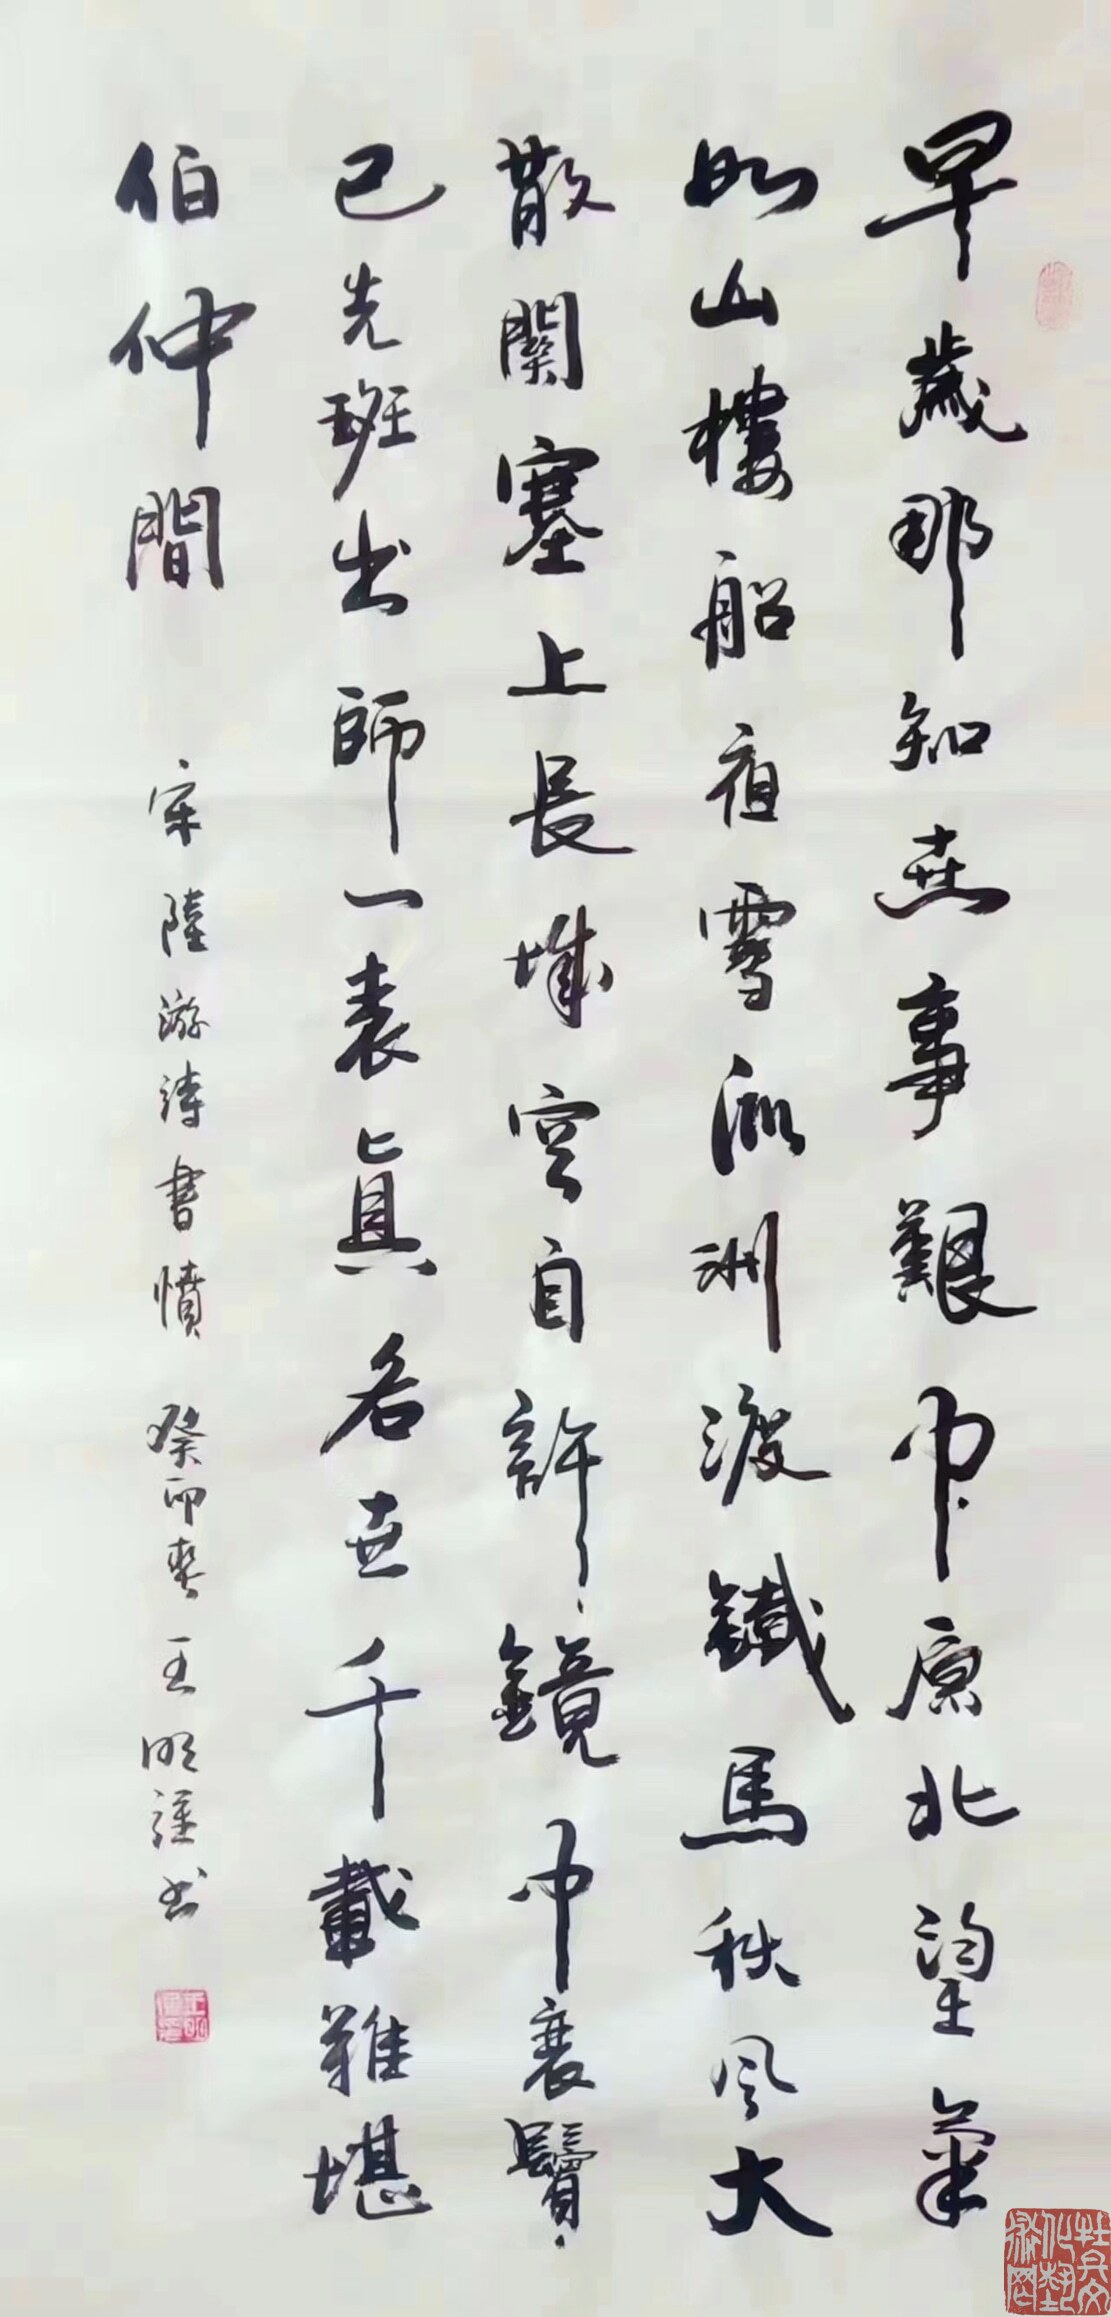 早歲那知世事艱中原北望氣
如山樓船夜雪瓜洲渡鐵馬秋風大
散關塞上長城空自許鏡中衰鬢
已先斑出師一表眞名世千載難堪
伯仲間 宋陸游詩書憤 癸卯 王明 书